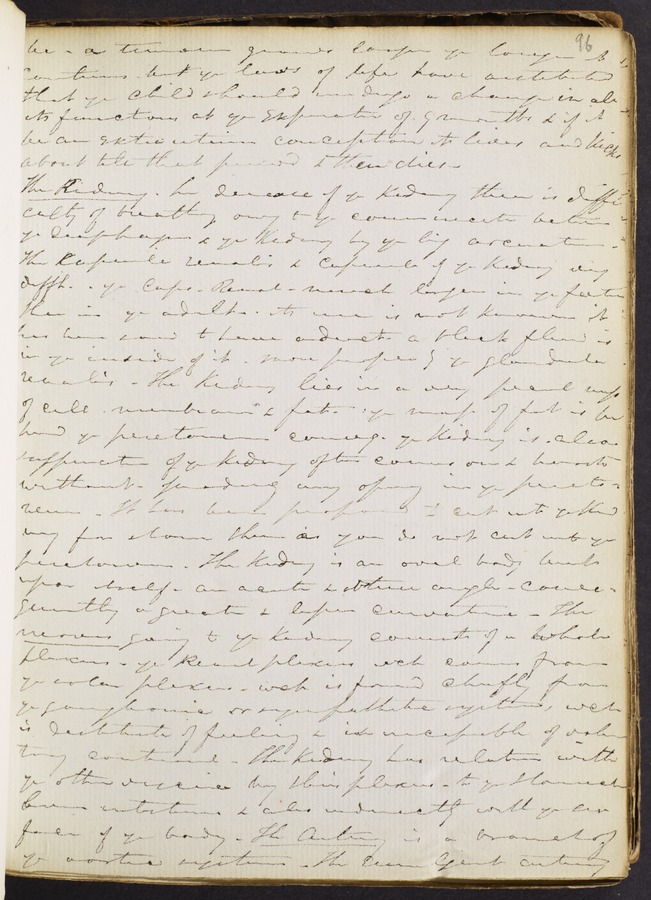 96
be - a tumour grows larger ye longer it
continues. but ye laws of life have instituted
that ye child should undergo a change in all
its functions at ye expiration of 9 months & if it
be an extrauterine conception it lives and kicks
about till that period & then dies -
The Kidney. In disease of ye Kidney there is diffi-
culty of breathing owing to ye between
ye diaphragm & ye Kidney by ye big
The Capsula renalis & capsule of ye Kidney very
diff.t - ye Caps. Renal - much larger in ye foetus
than in ye adult. its use is not known it
has been said to have a black fluid is
in ye inside of it. more properly ye glandula
renalis - The Kidney lies in a very
of cell. membrane & fat. ye mass of fat is be
hind ye peritoneum covering ye Kidney is also
suppuration of ye Kidney often comes on & bursts
without finding any opening in ye perito-
neum - It has been proposed to cut into ye Kid
ney for stone there as you do not cut into ye
peritoneum. The Kidney is an oval body bent
upon itself - an acute & obtuse angle - conse-
quently a great & lesser curvature - The
nerves going to ye Kidney consist of a whole
plexus - ye Renal plexus wch comes from
ye solar plexus - wch is formed chiefly from
ye ganglionic or sympathetic system, wch
is destitute of feeling & is incapable of volun
tary - The Kidney has relation with
ye other viscera by this plexus - to ye stomach
& also indirectly with ye sur
face of ye body - The Artery is a branch of
ye aortic system - The emulgent artery